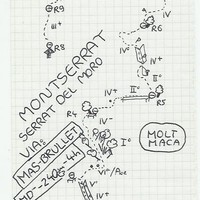 R9
III+
R8
IV
R6
IV-
II°
R5
MONTSERRAT
SERRAT DEL MORO
VIA:
MAS-BRULLET
MD--240S-4H
R4
IV-
I°
MOLT
MACA
VI+/A0e
V-
IV+